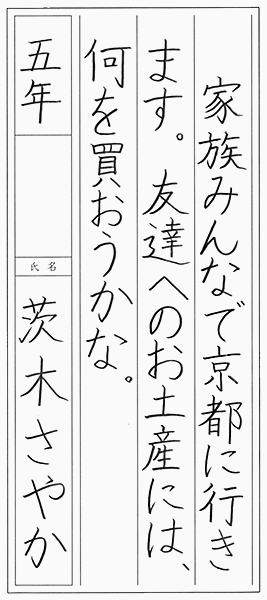 家族みんなで京都に行き
ます。友達へのお土産には、
何を買おうかな。
五年
氏名
茨木さやか